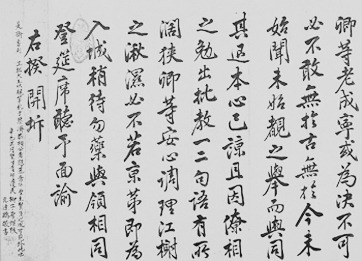 卿等老成寧或為決不可
必不敢無於古無於今未
始聞未始覩之擧而與同
其退本心已諒且因僚相
之勉出批教一二句語有所
濶狹卿等安心調理江榭
之湫濕必不若京第即為
入城稍待勿藥與領相同
登筵席聽予面諭
右揆開坼